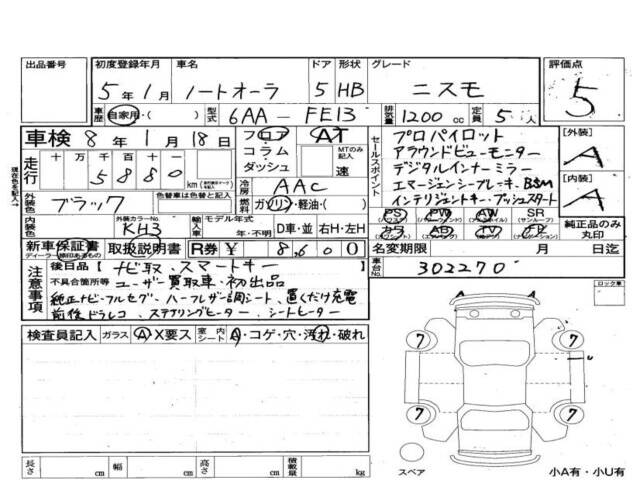 出品番号 初度登録年月 車名 ドア 形状 グレード 評価点
5年1月 ノートオーラ 5 HB ニスモ 5
車歴 自家用・( ) 型式 6AA-FE13 排気量 1200cc 定員 5人
車検 8年1月18日 フロア AT MTのみ記入 速
コラム・ダッシュ
走行 十万千百十 5880 km
冷房 AAC
燃料 ガソリン・軽油・( )
セールスポイント
プロパイロット
アラウンドビューモニター
デジタルインナーミラー
エマージェンシーブレーキ・BSM
インテリジェントキー・プッシュスタート
【外装】 A
【内装】 A
外装色 ブラック 色替車は色替と記入
内装色 外装カラーNo. KH3 輸入車 モデル年式 年・不明 D車・並 右H・左H
PS PW AW SR
カワ AB TV ナビ
純正品のみ丸印
新車保証書 取扱説明書 R券 ¥ 8,600 名変期限 月 日迄
ディーラー捺印あるもの
車台No. 302270
注意事項
後日品【ナビ取、スマートキー
不具合箇所等 ユーザー買取車・初出品
純正ナビ・フルセグ、ハーフレザー調シート、置くだけ充電
前後ドラレコ、ステアリングヒーター、シートヒーター
ロック車
検査員記入 ガラス A・X要ス 室内シート A・コゲ・穴・汚れ・破れ
7 7
7 7
スペア
長さ cm 幅 cm 高さ cm 積載量 kg
小A有・小U有